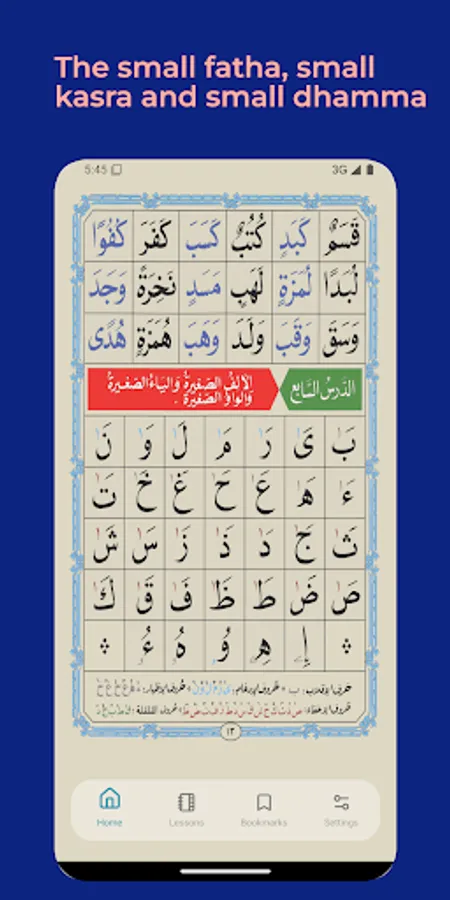 The small fatha, small
kasra and small dhamma
5:45 3G
قَسَمٌ كَبَدٍ كُتُبٌ كَسَبَ كَفَرَ كُفُوًا
لُبَدًا لُمَزَةٍ لَهَبٍ مَسَدٍ نَخِرَةً وَجَدَ
وَسَقَ وَقَبَ وَلَدَ وَهَبَ هُمَزَةٍ هُدًى
الدَّرْسُ السَّابِع
الْأَلِفُ الصَّغِيرَةُ وَالْيَاءُ الصَّغِيرَةُ
وَالْوَاوُ الصَّغِيرَةُ .
بَٰ یَٰ رَٰ مَٰ لَٰ وَٰ نَٰ
ءَٰ هَٰ عَٰ حَٰ غَٰ خَٰ تَٰ
ثَٰ جَٰ دَٰ ذَٰ زَٰ سَٰ شَٰ
صَٰ ضَٰ طَٰ ظَٰ فَٰ قَٰ كَٰ
إِ هِۦ وُ هُۥ عُ
١٣
Home Lessons Bookmarks Settings